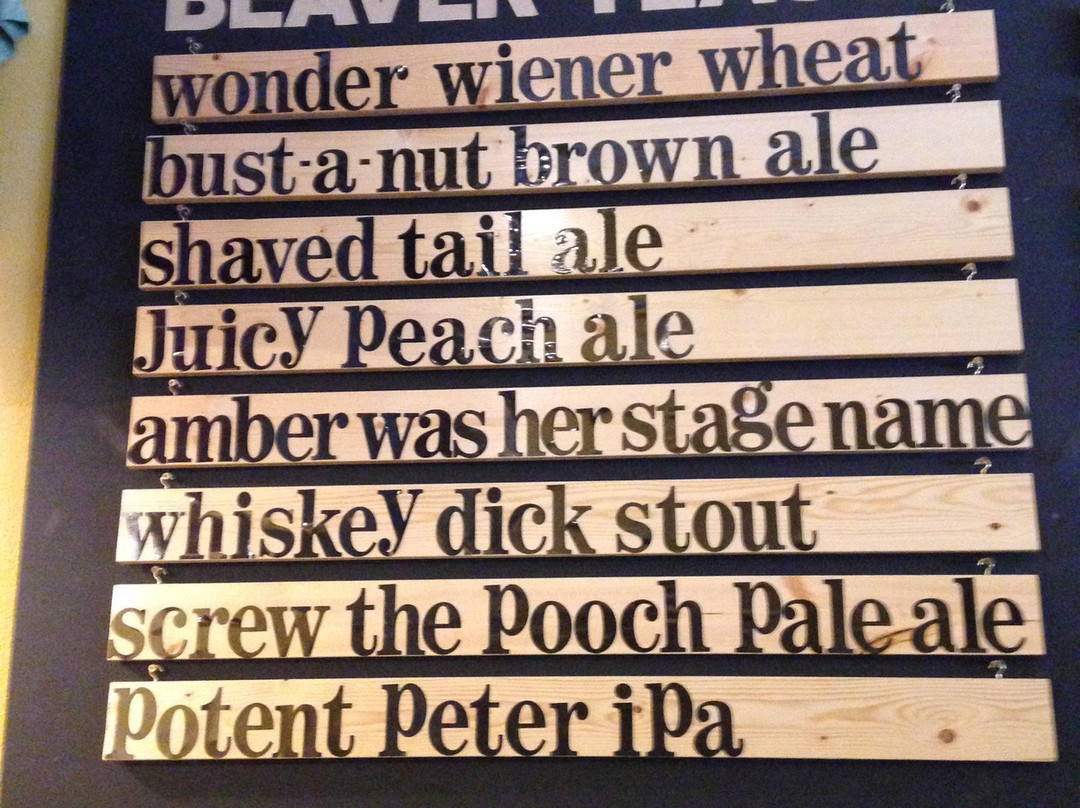 BEAVER
wonder wiener wheat
bust-a-nut brown ale
shaved tail ale
Juicy Peach ale
amber was her stage name
whiskey dick stout
screw the Pooch Pale ale
Potent Peter iPa